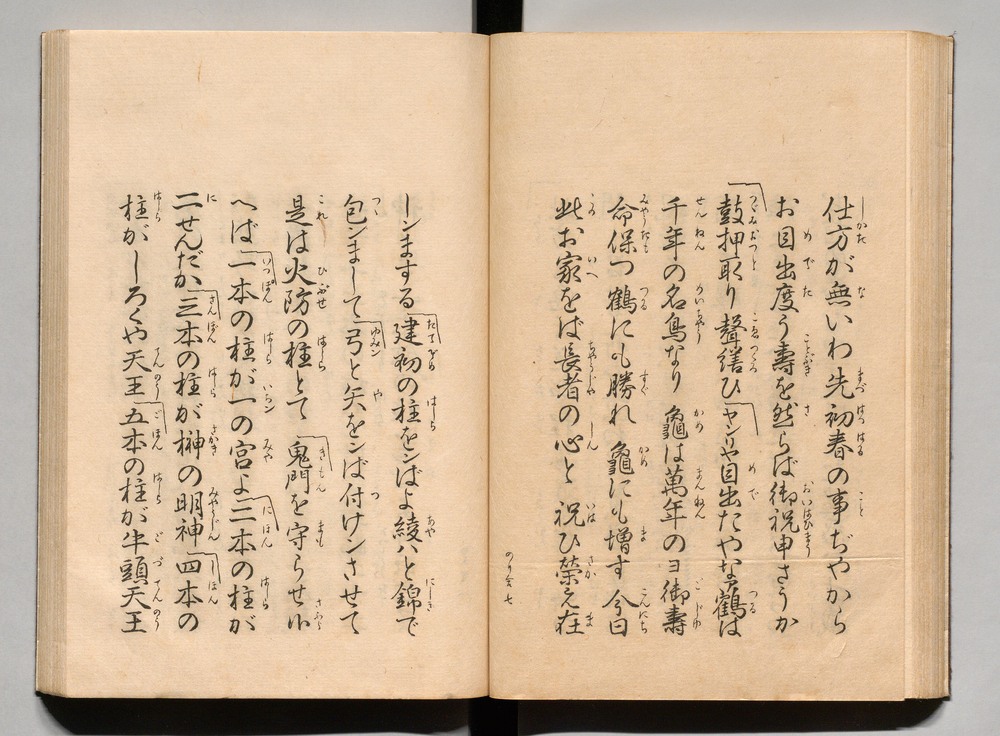 仕方が無いわ先初春の事ぢやから
お目出度う壽を然らば御祝申さうか
鼓押取り聲繕ひヤンリや目出たやなア鶴は
千年の名鳥なり 龜は萬年のヨ御壽
命保つ鶴にも勝れ 龜にも増す今日
此お家をば長者の心と 祝ひ榮え在
しンまする建初の柱をンばよ綾ハと錦で
包ンまして弓と矢をンば付けンさせて
是は火防の柱とて 鬼門を守らせ小
へば一本の柱が一の宮よ二本の柱が
二せんだが三本の柱が榊の明神四本の
柱がしろくや天王五本の柱が牛頭天王